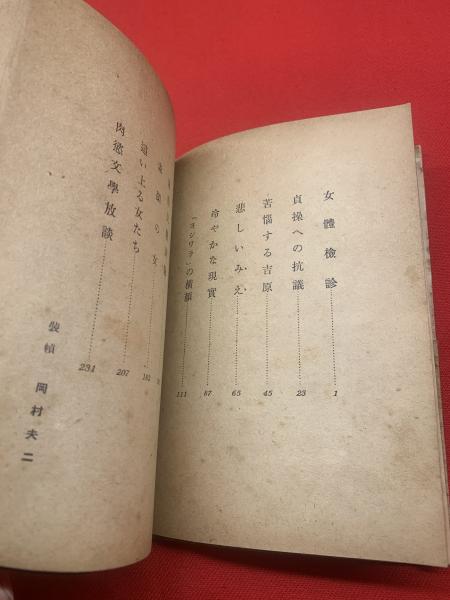 女體檢診 1
貞操への抗議 23
苦惱する吉原 45
悲しいみえ 65
冷やかな現實 87
「ヨシワラ」の橫顏 111
の女 182
這い上る女たち 207
肉慾文學放談 231
裝幀 岡村夫二